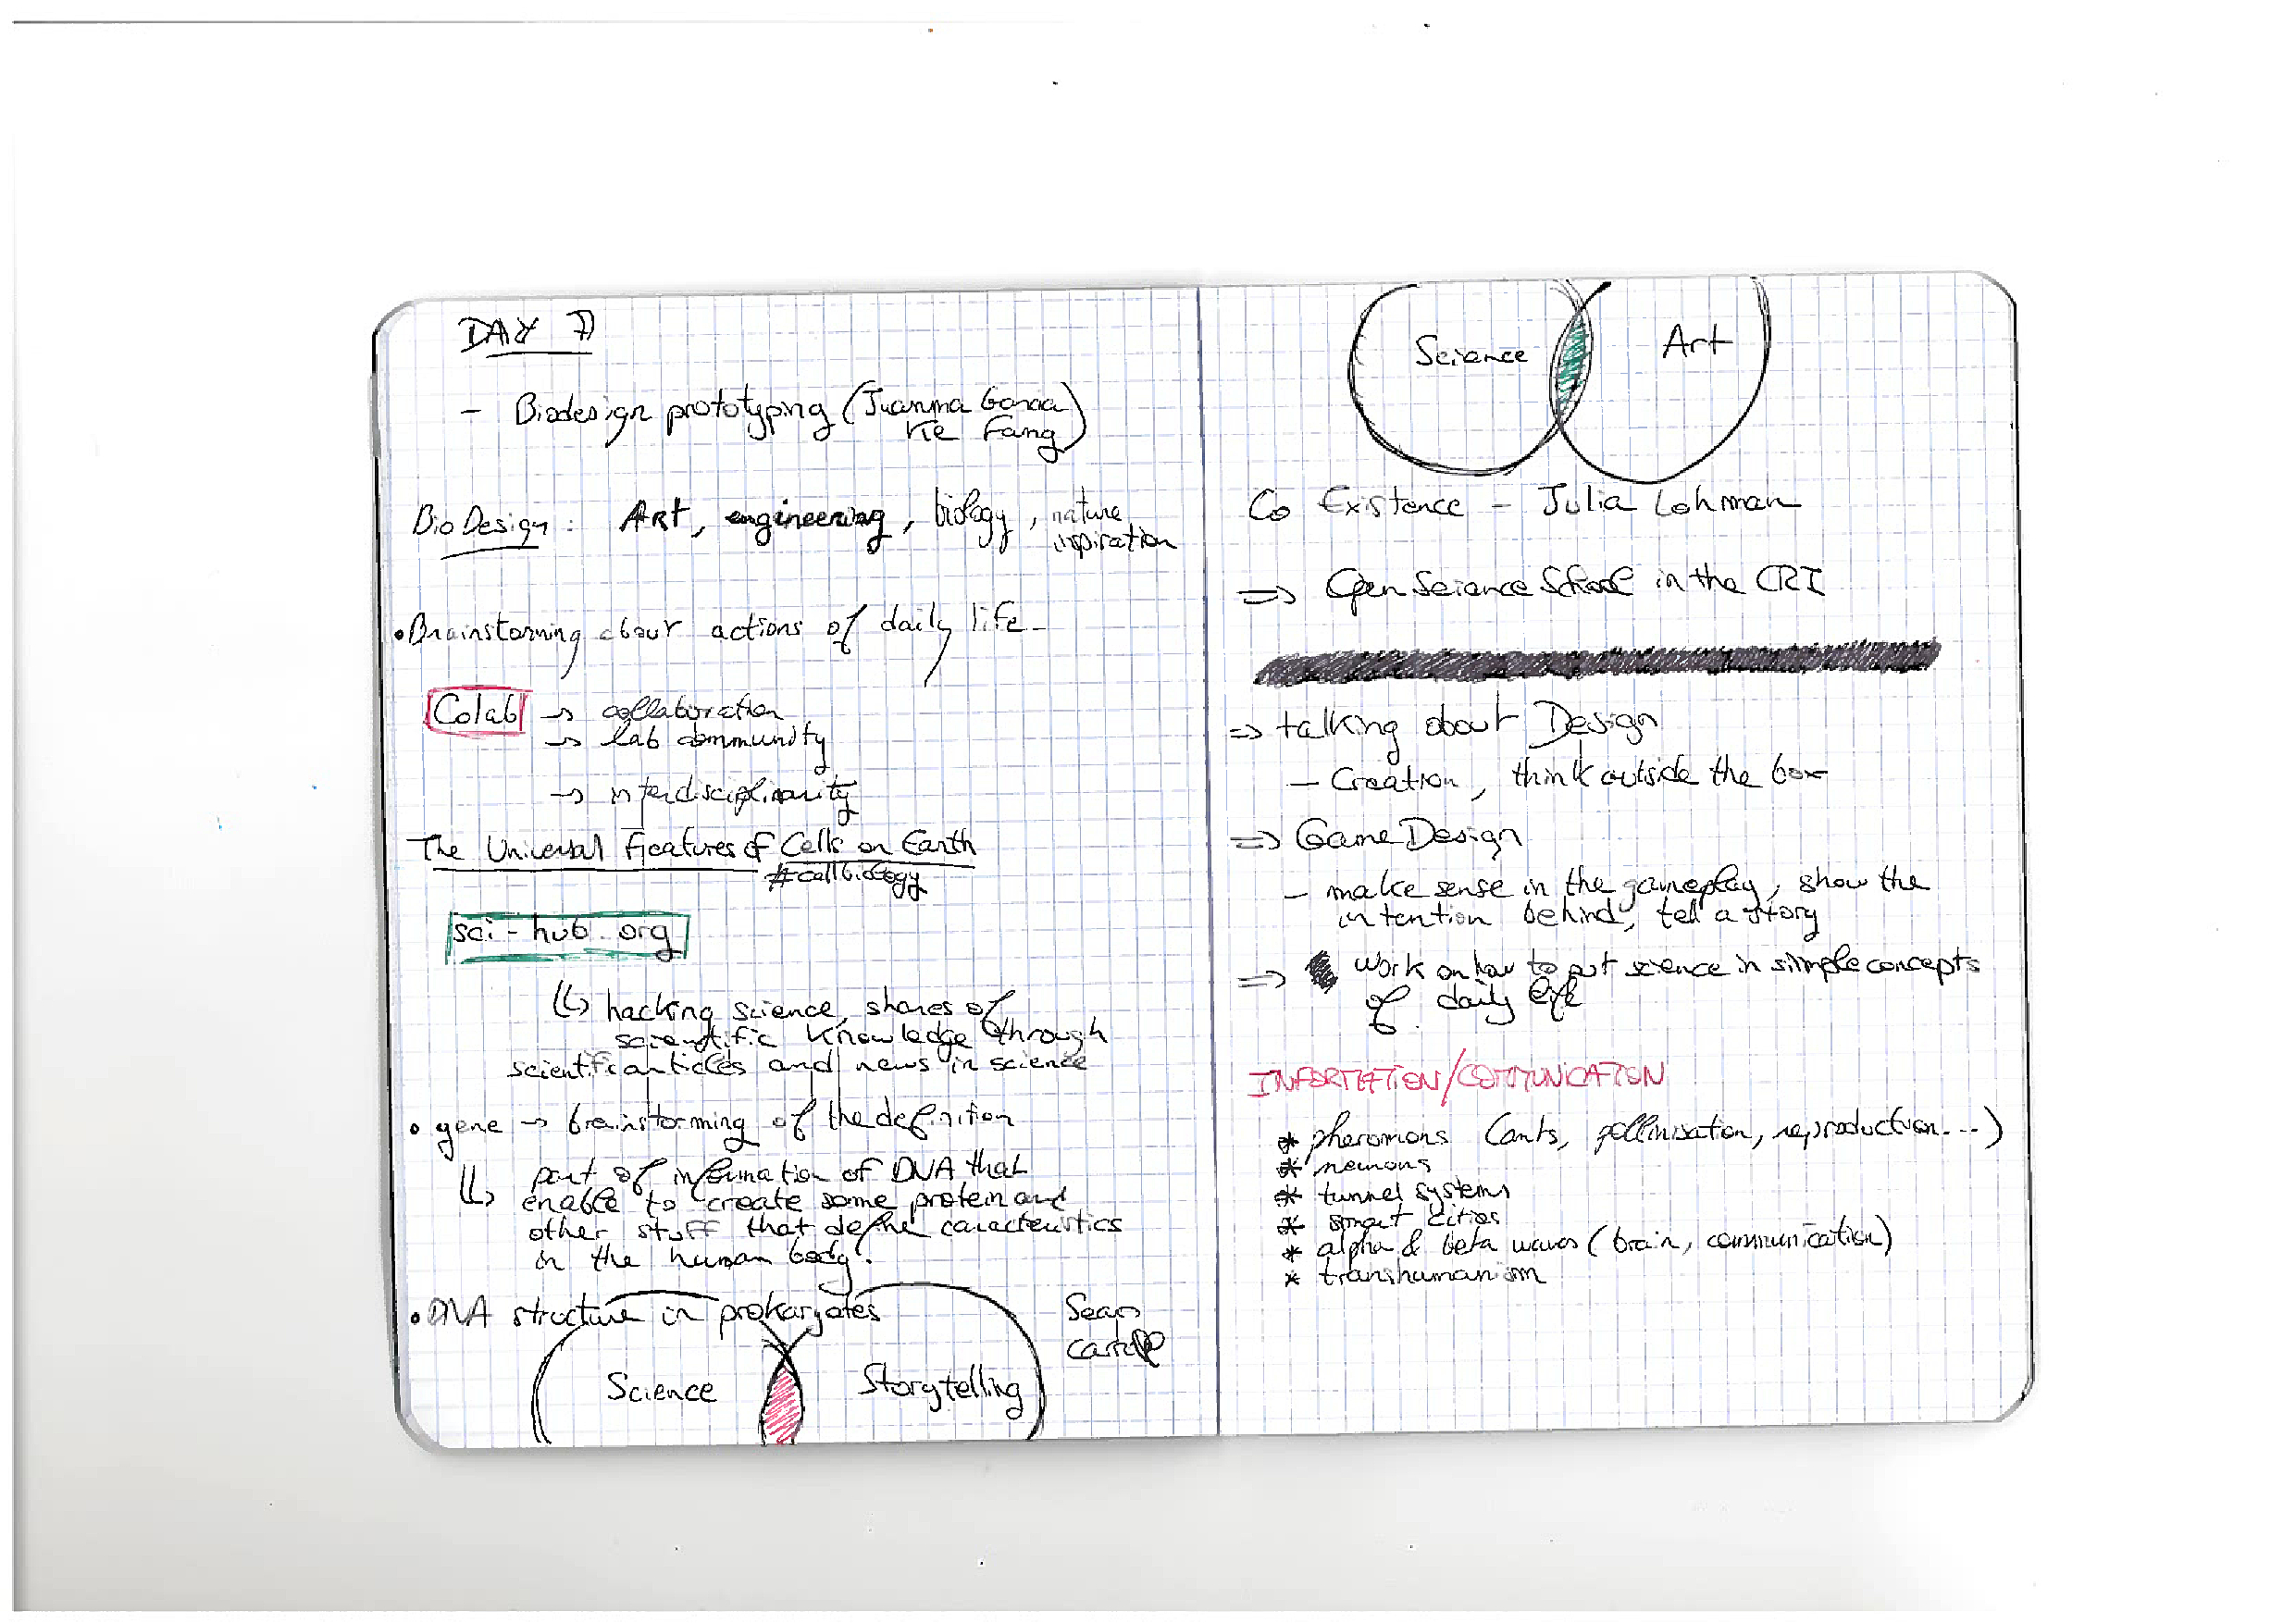 DAY 7
- Biodesign prototyping (Juanma Garcia
Ke Fang)
BioDesign : ART, engineering, biology, nature
inspiration
• Brainstorming about actions of daily life -
Colab → collaboration
→ lab community
→ interdisciplinarity
The Universal Features of Cells on Earth
#cellbiology
sci-hub.org
↳ hacking science, shares of
scientific knowledge through
scientific articles and news in science
• gene → brainstorming of the definition
↳ part of information of DNA that
enable to create some protein and
other stuff that define caracteristics
in the human body.
• DNA structure in prokaryotes
Sean
Science
Storytelling
Science
Art
Co Existence - Julia Lohman
⇒ Open Science School in the CRI
⇒ talking about Design
- Creation, think outside the box
⇒ Game Design
- make sense in the gameplay, show the
intention behind, tell a story
⇒ Work on how to put science in simple concepts
of daily life
INFORMATION/COMMUNICATION
* pheromons (ants, pollinisation, reproduction...)
* neurons
* tunnel systems
* smart cities
* alpha & beta waves (brain, communication)
* transhumanism